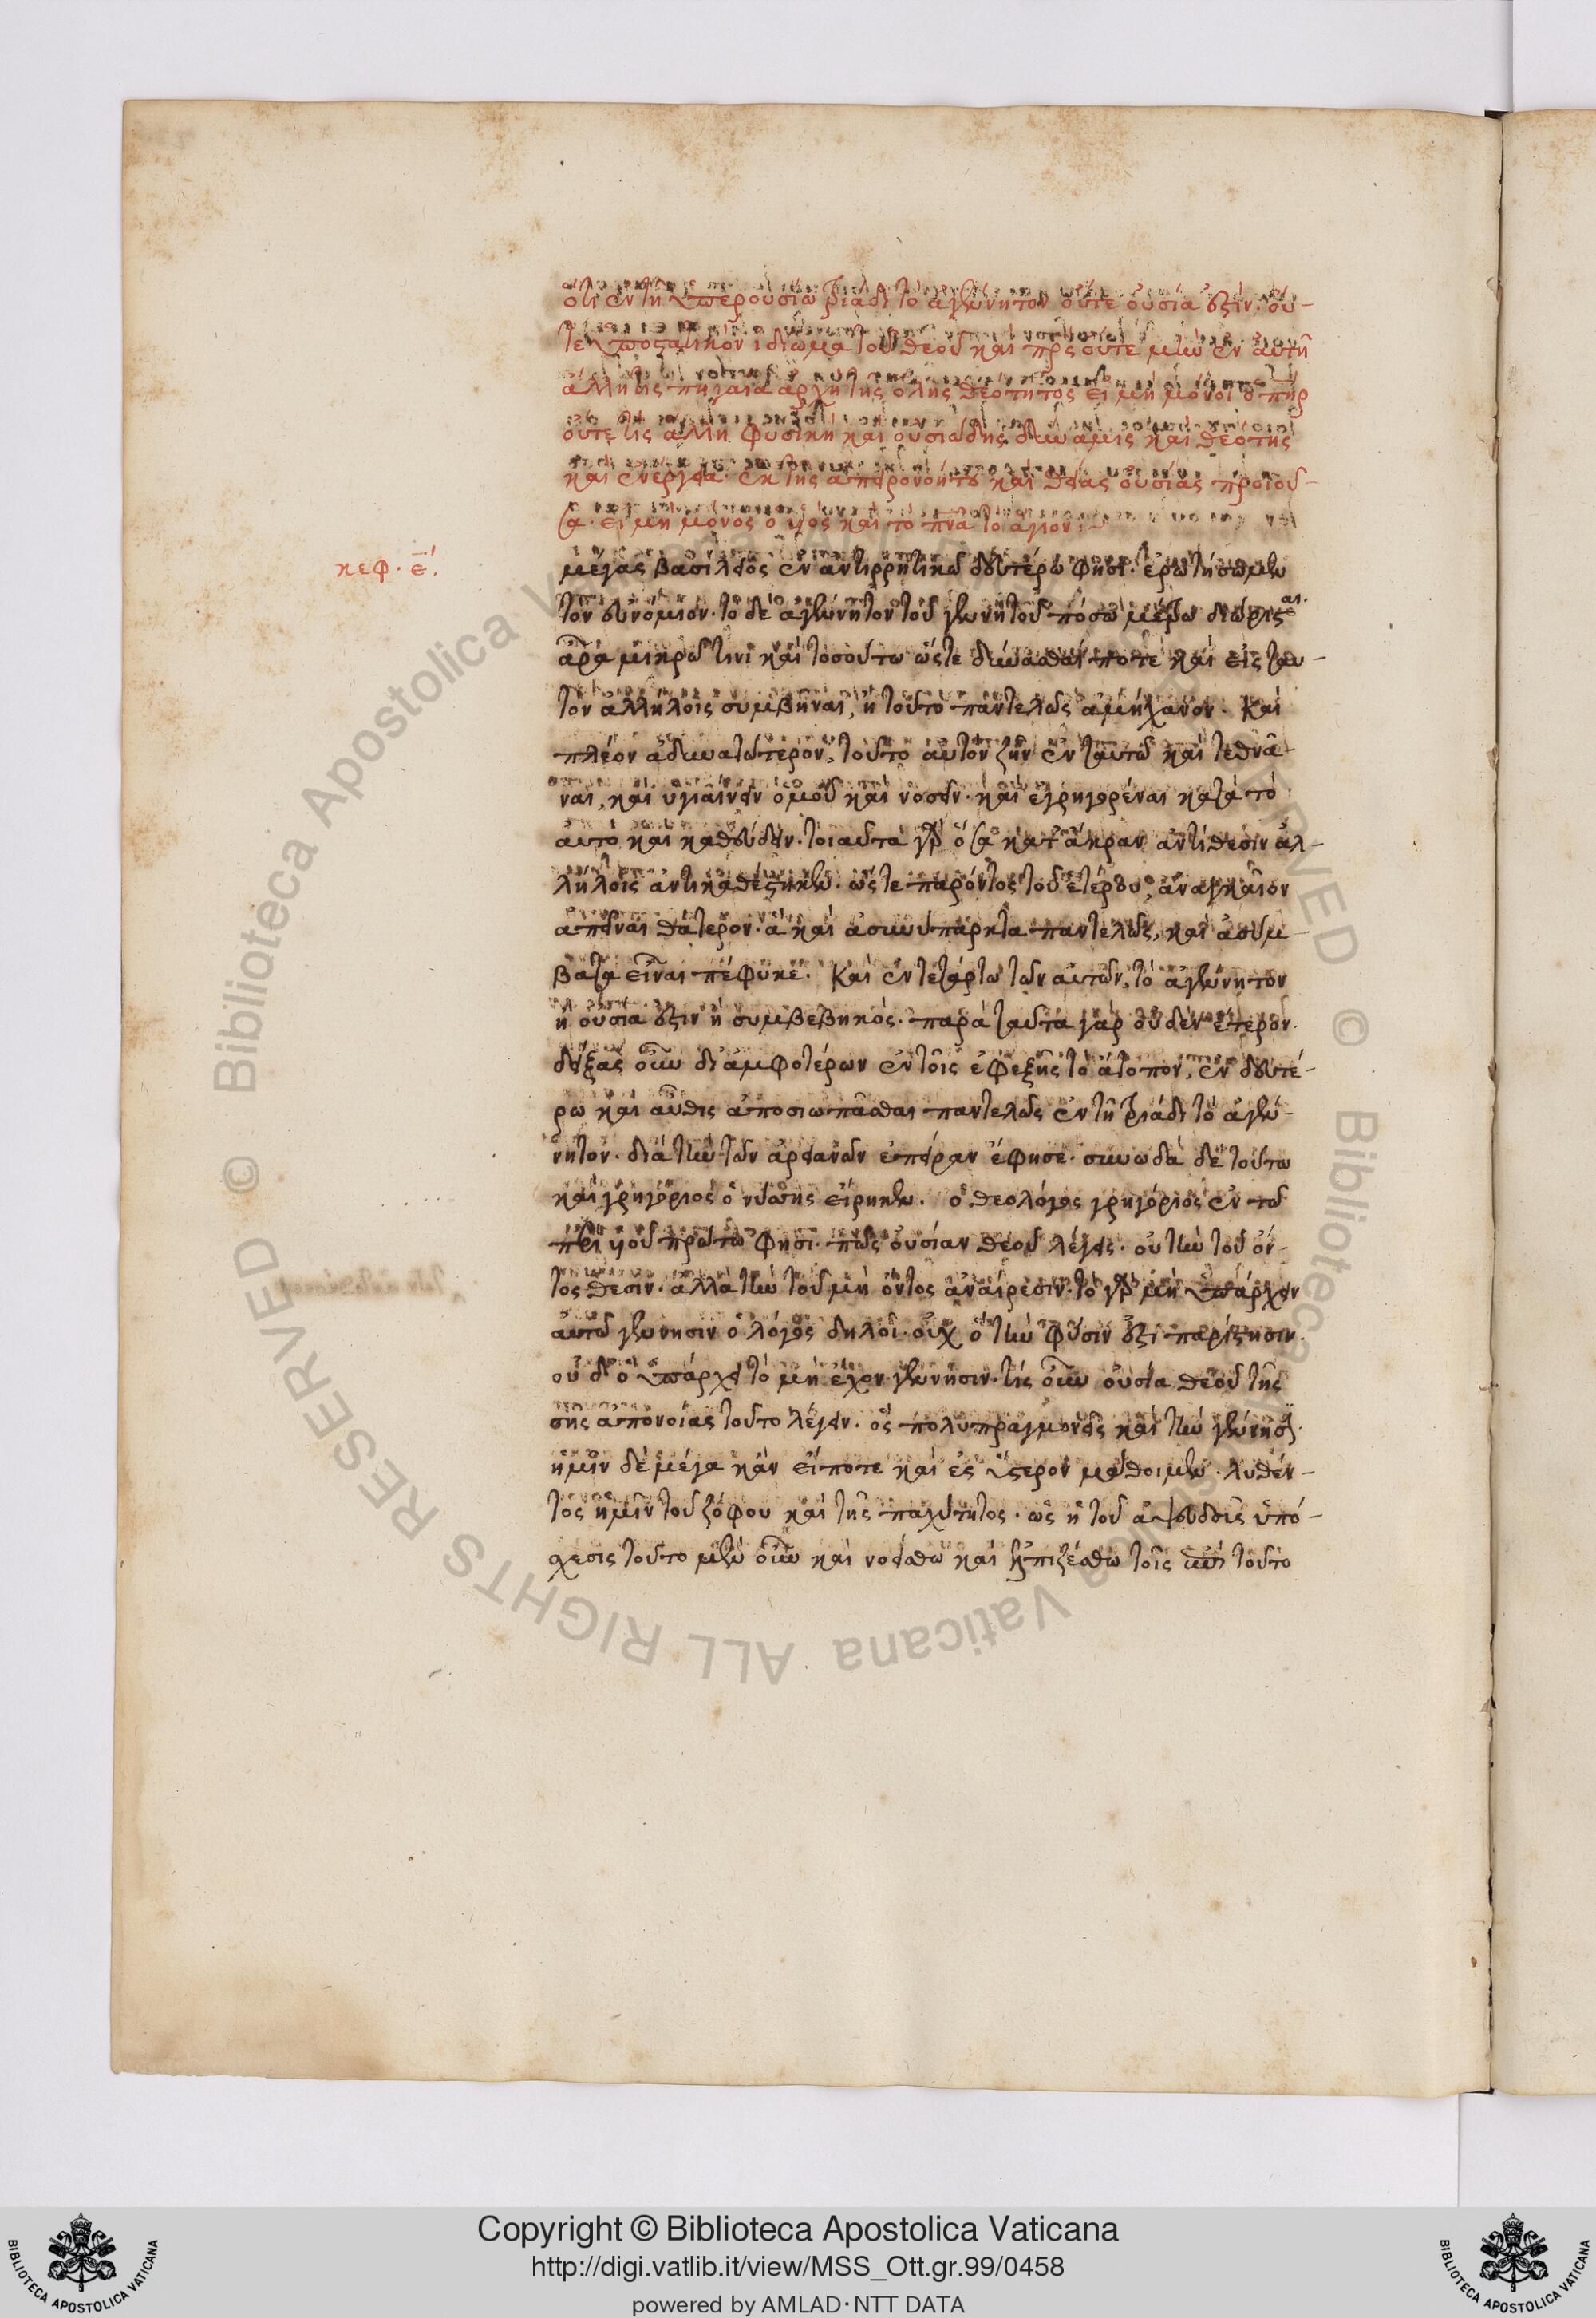 ὅτι ἐν τῇ ὑπερουσίω τριάδι τὸ ἀγέννητον οὔτε οὐσία ἐστίν· οὔ-
τε ὑποστατικὸν ἰδίωμα τοῦ θεοῦ καὶ πρς οὔτε μὴν ἐν αὐτῇ
ἄλλη τις πηγαία ἀρχὴ τῆς ὅλης θεότητος εἰ μὴ μόνος ὁ πηρ
οὔτε τις ἄλλη φυσικὴ καὶ οὐσιώδης δύναμις καὶ θεότης
καὶ ἐνέργεια· ἐκ τῆς ἀπερινοήτου καὶ θείας οὐσίας προϊοῦ-
σα· εἰ μὴ μόνος ὁ υἱὸς καὶ τὸ πνα τὸ ἅγιον:
κεφ. ε´.
μέγας βασίλειος ἐν ἀντιρρητικῶ δευτέρω φησί· ἐρωτήσωμεν
τὸν εὐνόμιον· τὸ δὲ ἀγέννητον τοῦ γεννητοῦ πόσω μέτρω διώρισται·
ἆρα μικρῶ τινὶ καὶ τοσούτω ὥστε δύνασθαί ποτὲ καὶ εἰς ταυ-
τὸν ἀλλήλοις συμβῆναι, ἢ τοῦτο παντελῶς ἀμήχανον. Καὶ
πλέον ἀδυνατώτερον, τοῦτο αὐτὸν ζῆν ἐν ταυτῶ καὶ τεθνᾶ-
ναι, καὶ ὑγιαίνειν ὁμοῦ καὶ νοσεῖν· καὶ ἐγρηγορέναι κατὰ τὸ
αὐτὸ καὶ καθεύδειν· τοιαῦτα γὰρ ὅσα κατ' ἄκραν ἀντίθεσιν ἀλ-
λήλοις ἀντικαθέστηκεν· ὥστε παρόντος τοῦ ἑτέρου, ἀναγκαῖον
ἀπεῖναι θάτερον· ἃ καὶ ἀσυνύπαρκτα παντελῶς, καὶ ἀσύμ-
βατα εἶναι πέφυκε. Καὶ ἐν τετάρτω τῶν αὐτῶν, τὸ ἀγέννητον
ἢ οὐσία ἐστὶν ἢ συμβεβηκός· παρὰ ταῦτα γὰρ οὐδὲν ἕτερον·
δείξας οὖν δι' ἀμφοτέρων ἐν τοῖς ἐφεξῆς τὸ ἄτοπον, ἐν δευτέ-
ρω καὶ αὖθις ἀποσιωπᾶσθαι παντελῶς ἐν τῇ τριάδι τὸ ἀγέν-
νητον· διὰ τὴν τῶν ἀρειανῶν ἐπήρειαν ἔφησε· συνωδὰ δὲ τούτω
καὶ γρηγόριος ὁ νύσσης εἴρηκεν. ὁ θεολόγος γρηγόριος ἐν τῶ
περὶ υἱοῦ πρώτω φησί· πῶς οὐσίαν θεοῦ λέγεις· οὐ τὴν τοῦ ὄν-
τος θέσιν· ἀλλὰ τὴν τοῦ μὴ ὄντος ἀναίρεσιν· τὸ γὰρ μὴ ὑπάρχειν
αὐτῶ γέννησιν ὁ λόγος δηλοῖ· οὐχ ὃ τὴν φύσιν ἐστὶ παρίστησιν·
οὐδ' ὃ ὑπάρχει τὸ μὴ ἔχον γέννησιν· τίς οὖν οὐσία θεοῦ τῆς
σῆς ἀπονοίας τοῦτο λέγειν· ὃς πολυπραγμονεῖς καὶ τὴν γέννησιν·
ἡμῖν δὲ μέγα κἂν εἴποτε καὶ ἐς ὕστερον μάθοιμεν· λυθέν-
τος ἡμῖν τοῦ ζόφου καὶ τῆς παχύτητος· ὡς ἡ τοῦ ἀψευδοῦς ὑπό-
σχεσις τοῦτο μὲν οὖν καὶ νοείσθω καὶ ἐλπιζέσθω τοῖς ἐπὶ τοῦτο